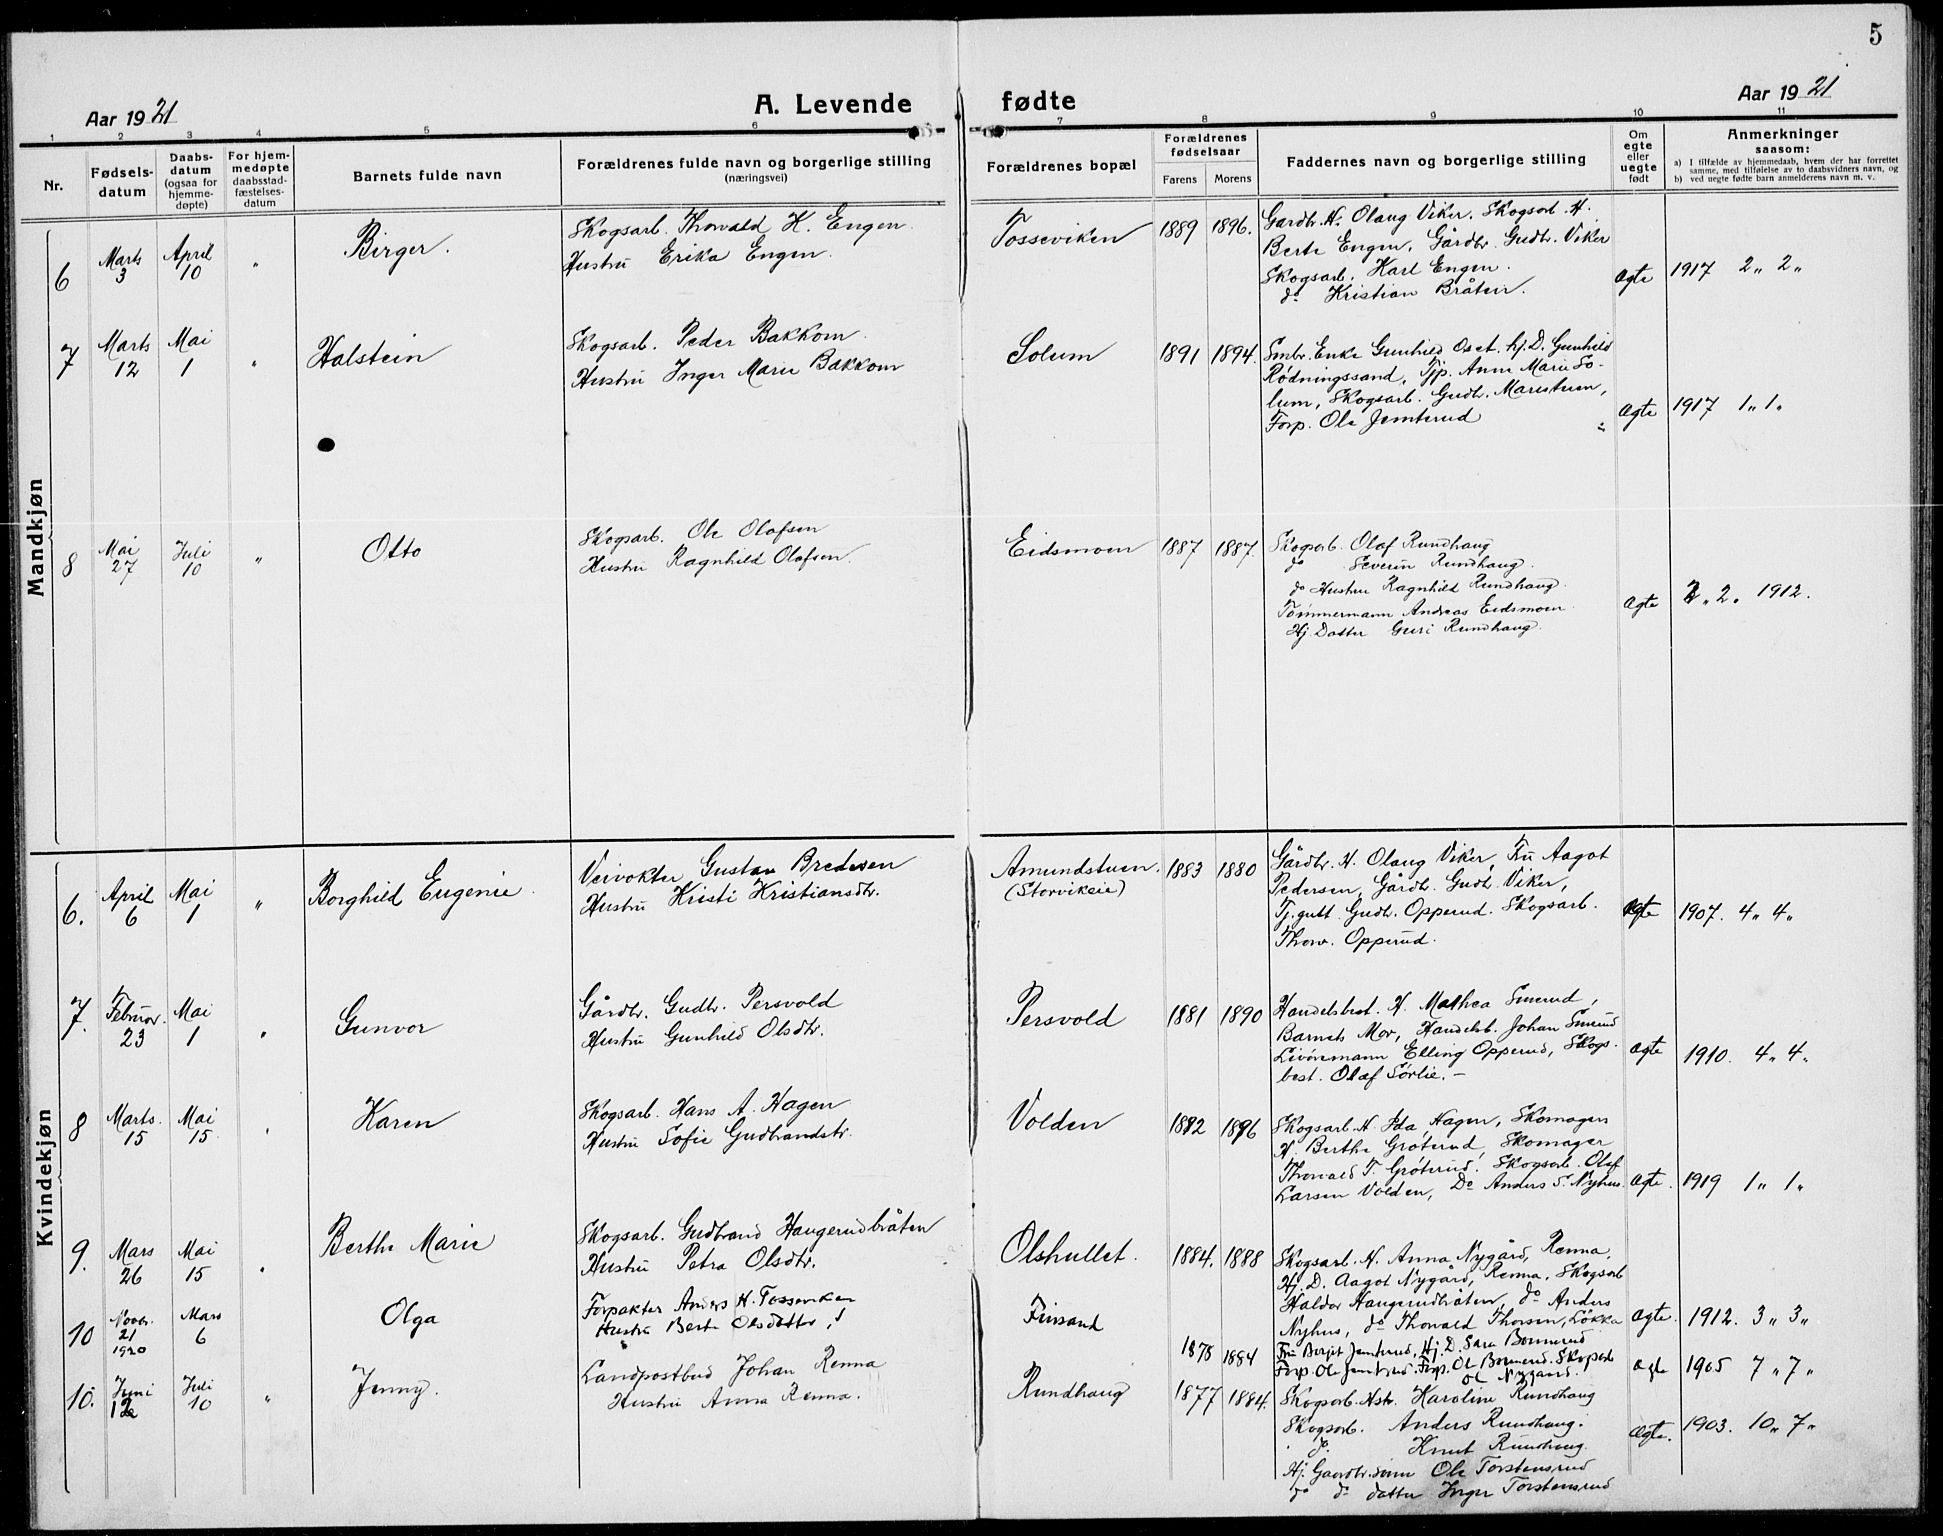 5
Aar 1921
A. Levende
fødte
Aar 1921
1 2 3 4 5 6 7 8 9 10 11
Nr.
Fødsels-
datum
Daabs-
datum
(ogsaa for
hjemme-
døpte)
For hjem-
medøpte
daabsstad-
fæstelses-
datum
Barnets fulde navn
Forældrenes fulde navn og borgerlige stilling
(næringsvei)
Forældrenes bopæl
Forældrenes
fødselsaar
Farens
Morens
Faddernes navn og borgerlige stilling
Om
egte
eller
uegte
født
Anmerkninger
saasom:
a) I tilfælde av hjemmedaab, hvem der har forrettet
samme, med tilføielse av to daabsvidners navn, og
b) ved uegte fødte barn anmelderens navn m. v.
Mandkjøn
6
Marts
3
April
10
"
Birger.
Skogsarb. Thorvald H. Engen.
Hustru Erika Engen.
Tosseviken
1889
1896.
Gardbr. H. Olaug Viker. Skogsarb. H.
Berte Engen, Gårdbr. Gudbr. Viker
Skogsarb. Karl Engen.
do Kristian Bråten.
Ægte
1917 2 " 2 "
7
Marts
12
Mai
1
"
Halstein
Skogsarb. Peder Bakkom
Hustru Inger Marie Bakkom
Solum
1891
1894.
Smbr. Enke Gunhild Oset. hj. D. Gunhild
Rødningssand, Tjp. Anne Marie So-
lum, Skogsarb. Gudbr. Marestuen,
Forp. Ole Jemterud
Ægte
1917 1 " 1 "
8
Mai
27
Juli
10
"
Otto
Skogsarb. Ole Olafsen
Hustru Ragnhild Olafsen.
Eidsmoen
1887
1887.
Skogsarb. Olaf Rundhaug
do Severin Rundhaug.
do Hustru Ragnhild Rundhaug.
Tømmermann Andreas Eidsmoen.
Hj. Datter Guri Rundhaug.
Ægte
2 " 2 " 1912.
Kvindekjøn
6.
April
6
Mai
1
"
Borghild Eugenie.
Veivokter Gustav Bredesen
Hustru Kristi Kristiansdtr.
Amundstuen.
(Storvikeie)
1883
1880
Gårdbr. H. Olaug Viker, Fru Aagot
Pedersen, Gårdb. Gudb. Viker,
Tj.gutt. Gudbr. Opperud. Skogsarb.
Thorv. Opperud.
Ægte
1907. 4 " 4 "
7.
Februar.
23
Mai
1
"
Gunvor
Gårdbr. Gudbr. Persvold
Hustru Gunhild Olsdtr.
Persvold
1881
1890
Handelsbest. H. Mathea Smerud,
Barnets Mor, Handelsb. Johan Smerud
Elling Opperud, Skogs-
best. Olaf Sørlie. -
Ægte
1910. 4 " 4 "
8
Marts.
15
Mai
15
Karen
Skogsarb. Hans A. Hagen
Hustru Sofie Gudbrandsdtr.
Volden
1892
1896
Skogsarb. H. Ida Hagen, Skomager
H. Berthe Grøterud, Skomager
Thorvald T. Grøterud. Skogsarb. Olaf
Larsen Volden, Do Anders S. Nyhus.
Ægte.
1919 1 " 1 "
9.
Mars
26
Mai
15
"
Berthe Marie
Skogsarb. Gudbrand Haugerudbråten
Hustru Petra Olsdtr.
Olshullet.
1884.
1888
Skogsarb. H. Anna Nygård, Renna,
Hj. D. Aagot Nygård, Renna. Skogsarb
Haldor Haugerudbråten, do Anders
Nyhus, do Thorvald Thorsen, Løkka
Ægte.
1912. 3 " 3 "
10
Novbr.
21
1920
Mars
6
Olga
Forpakter Anders H. Tosseviken
Hustru Berte Olsdatter
Finsand
1878
1884
Fru Bergit Jemterud, Hj. D. Sara Bonnerud
Forp. Ole Jemterud. Forp. Ol. Bonnerud. Skogsarb
Ol. Nygaard.
Ægte
1905 7 " 7 "
10.
Juni
12
Juli
10
"
Jenny.
Landpostbud Johan Renna
Hustru Anna Renna.
Rundhaug
1877
1884.
Skogsarb. Hstr. Karoline Rundhaug
Skogsarb. Anders Rundhaug.
do Knut Rundhaug.
Hj. Gaardbr.sønn Ole Torstensrud
do do datter Inger Torstensrud
Ægte.
1903. 10 " 7 "